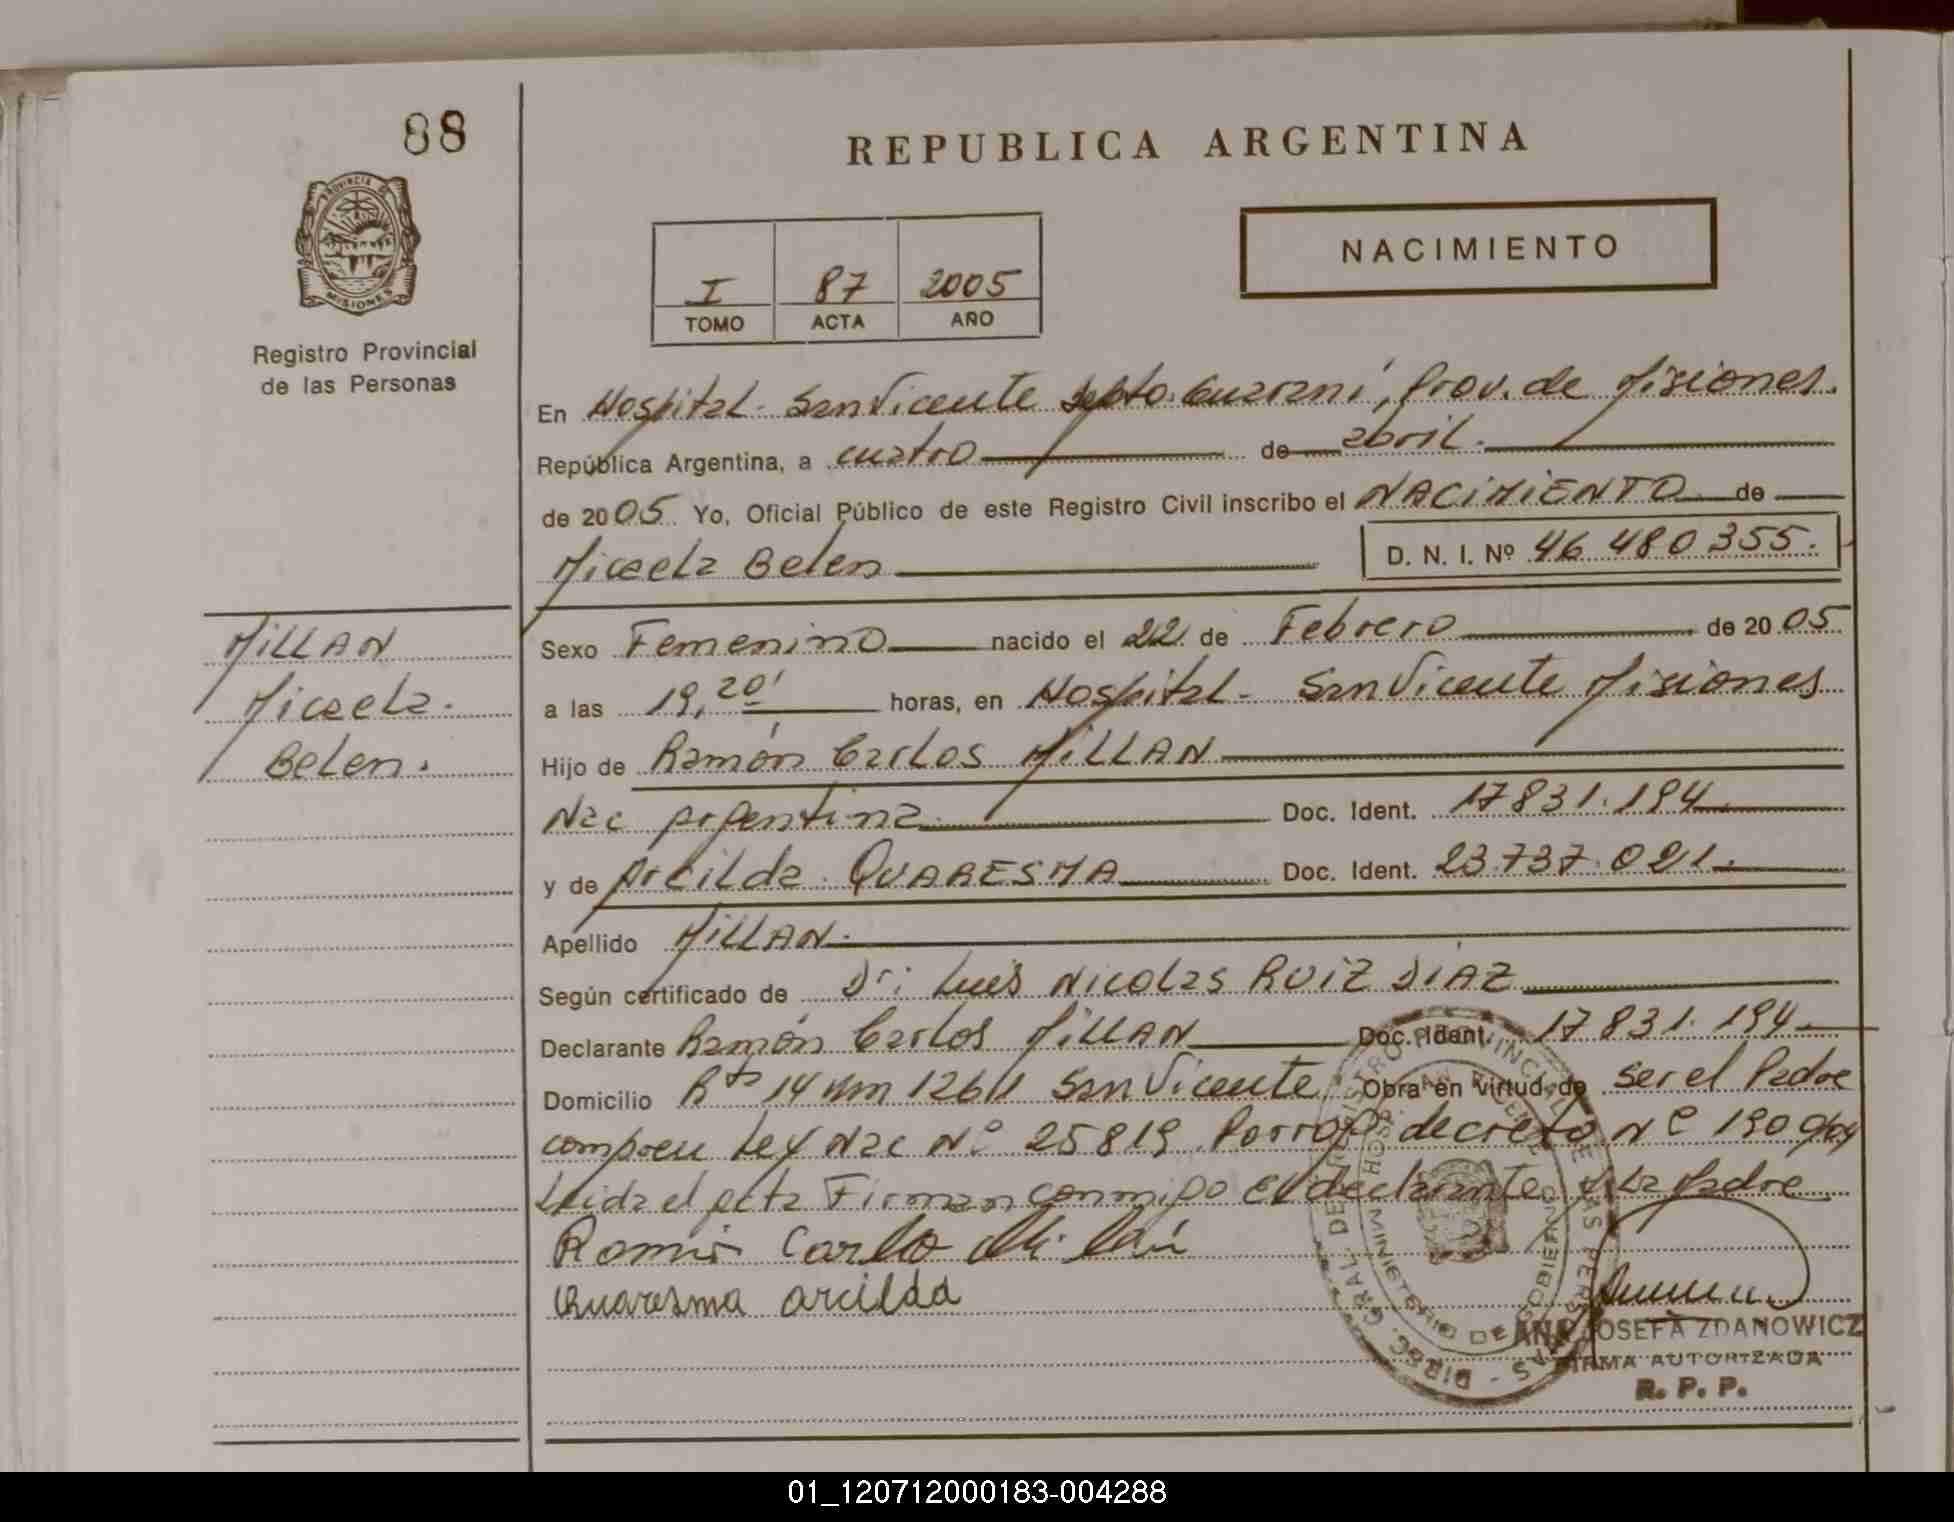 88
REPUBLICA ARGENTINA
PROVINCIA DE
MISIONES
Registro Provincial
de las Personas
NACIMIENTO
I 87 2005
TOMO ACTA AÑO
En Hospital San Vicente Depto. Guarani, Prov. de Misiones.
República Argentina, a cuatro de abril.
de 2005 Yo, Oficial Público de este Registro Civil inscribo el NACIMIENTO de
Micaela Belen D. N. I. Nº 46 480 355.
MILLAN
Micaela.
Belen.
Sexo Femenino nacido el 22 de Febrero de 2005
a las 19,20' horas, en Hospital - San Vicente Misiones
Hijo de Ramón Carlos MILLAN
Nac Argentina Doc. Ident. 17831.194
y de Arcilda QUARESMA Doc. Ident. 23.737.021.
Apellido MILLAN.
Según certificado de Dr: Luis Nicolas RUIZ DIAZ
Declarante Ramón Carlos MILLAN Doc. Ident. 17831.194
Domicilio Rta 14 Km 1261 San Vicente Obra en virtud de ser el Padre
Ley Nac Nº 25819 decreto Nº 190
Leida el acta Firman conmigo el declarante y la Madre
Carlo
Quaresma arcilda
DIREC. GRAL. DEL REGISTRO PROVINCIAL DE LAS PERSONAS
MINISTERIO DE GOBIERNO
ANA JOSEFA ZDANOWICZ
FIRMA AUTORIZADA
R. P. P.
01_120712000183-004288